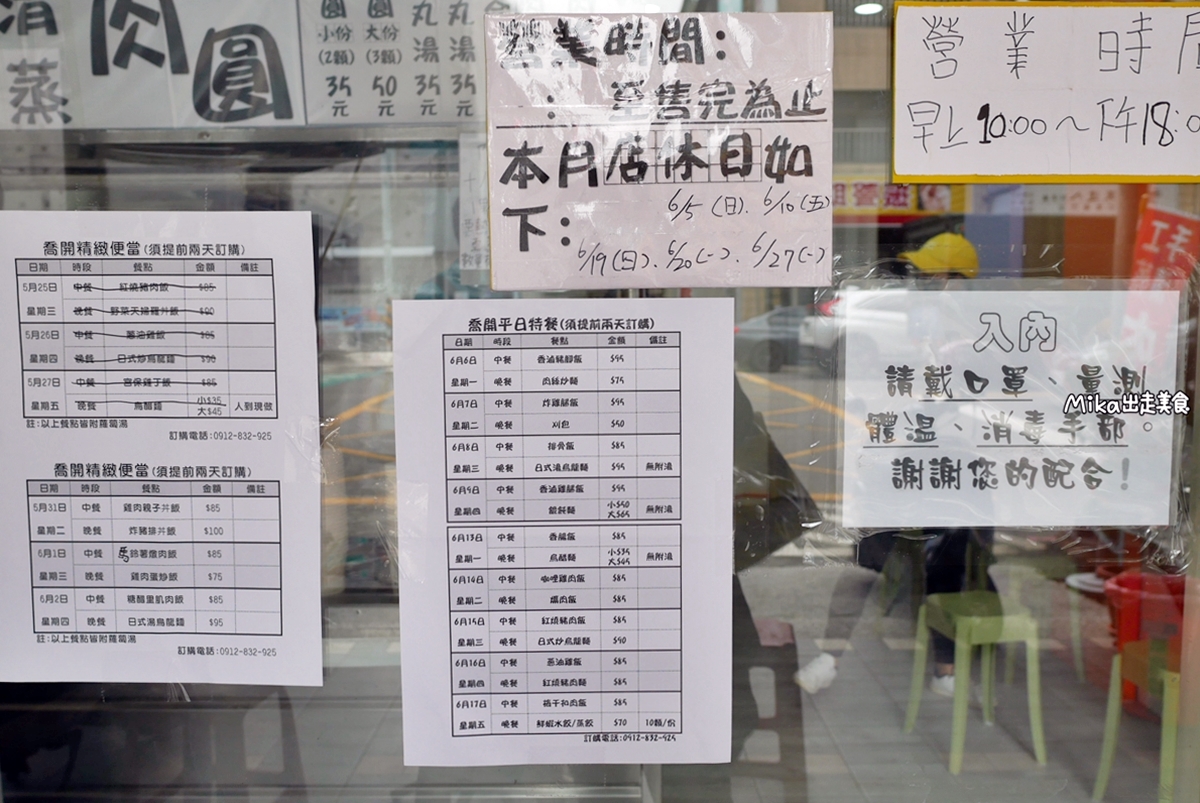 清蒸
肉圓
圓 圓 丸 丸
小份 大份 湯 湯
(2顆) (3顆)
35元 50元 35元 35元
營業時間:
: 至售完為止
本月店休日如
下: 6/5(日)、6/10(五)
6/19(日)、6/20(一)、6/27(一)
營業時
早上10:00~下午18:0
喬開精緻便當(須提前兩天訂購)
日期 時段 餐點 金額 備註
5月25日 中餐 紅燒豬肉飯 $85
星期三 晚餐 野菜天婦羅丼飯 $90
5月26日 中餐 蔥油雞飯 $85
星期四 晚餐 日式炒烏龍麵 $90
5月27日 中餐 宮保雞丁飯 $85
星期五 晚餐 烏醋麵 小$35 大$45 人到現做
註:以上餐點皆附蘿蔔湯
訂購電話:0912-832-925
喬開精緻便當(須提前兩天訂購)
日期 時段 餐點 金額 備註
5月31日 中餐 雞肉親子丼飯 $85
星期二 晚餐 炸豬排丼飯 $100
6月1日 中餐 馬鈴薯燉肉飯 $85
星期三 晚餐 雞肉蛋炒飯 $75
6月2日 中餐 糖醋里肌肉飯 $85
星期四 晚餐 日式湯烏龍麵 $95
註:以上餐點皆附蘿蔔湯
訂購電話:0912-832-925
喬開平日特餐(須提前兩天訂購)
日期 時段 餐點 金額 備註
6月6日 中餐 香滷豬腳飯 $95
星期一 晚餐 肉絲炒麵 $75
6月7日 中餐 炸雞腿飯 $95
星期二 晚餐 刈包 $50
6月8日 中餐 排骨飯 $85
星期三 晚餐 日式湯烏龍麵 $95 無附湯
6月9日 中餐 香滷雞腿飯 $95
星期四 晚餐 餛飩麵 小$50 大$65 無附湯
6月13日 中餐 香腸飯 $85
星期一 晚餐 烏醋麵 小$35 大$45 無附湯
6月14日 中餐 咖哩雞肉飯 $85
星期二 晚餐 爌肉飯 $85
6月15日 中餐 紅燒豬肉飯 $85
星期三 晚餐 日式炒烏龍麵 $90
6月16日 中餐 蔥油雞飯 $85
星期四 晚餐 紅燒豬肉麵 $85
6月17日 中餐 梅干扣肉飯 $85
星期五 晚餐 鮮蝦水餃/蒸餃 $70 10顆/份
訂購電話:0912-832-925
入內
請戴口罩、量測
體溫、消毒手部。
謝謝您的配合!
Mika出走美食